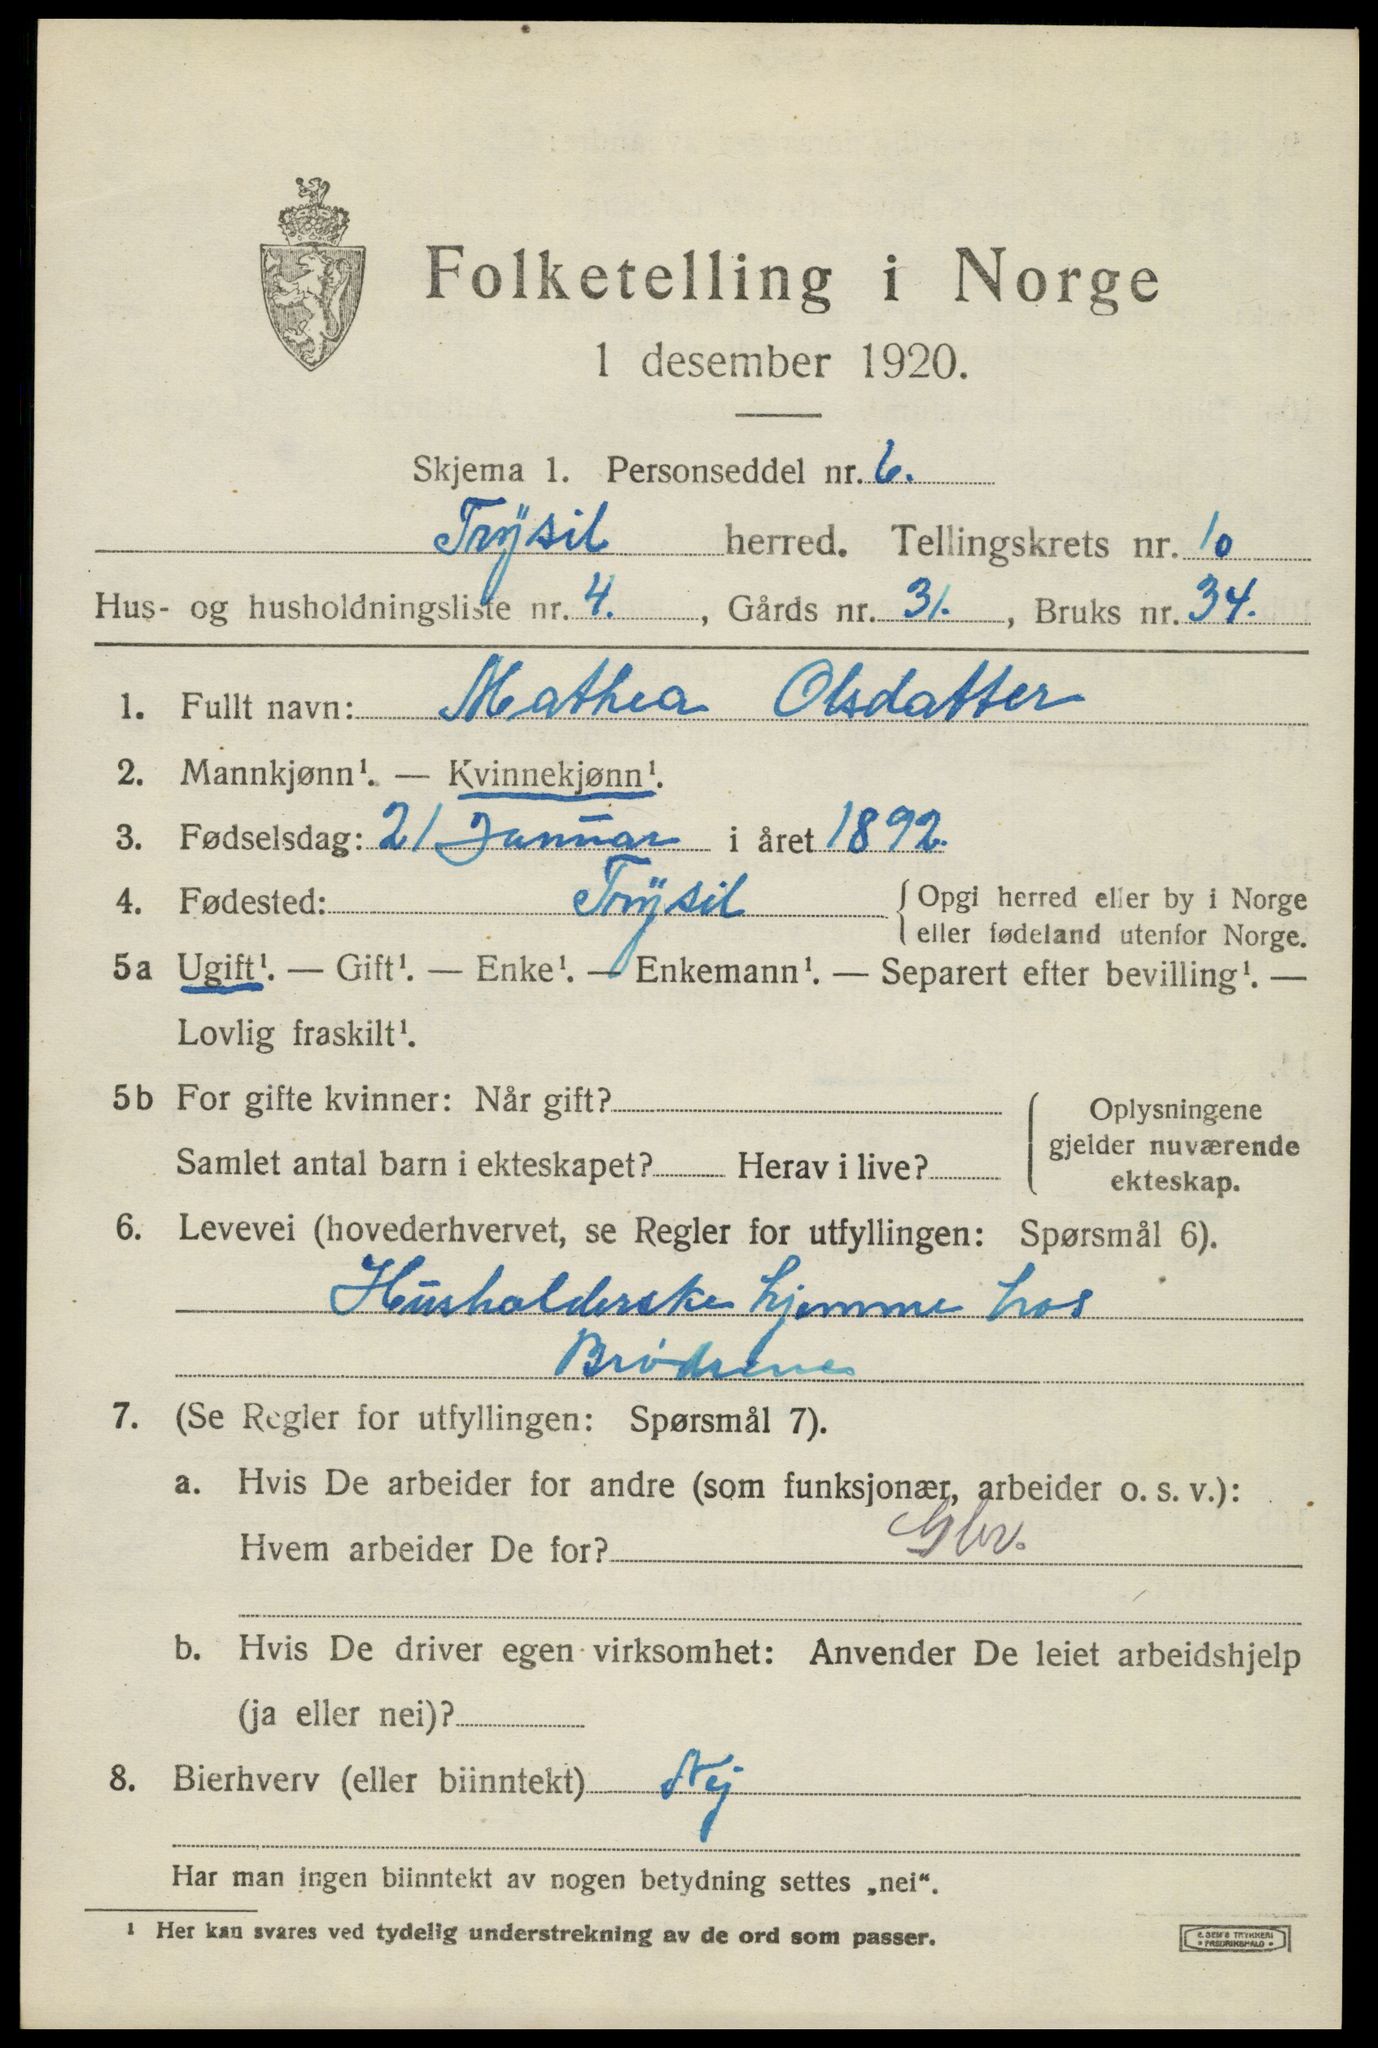 Folketelling i Norge
1 desember 1920.
Skjema 1. Personseddel nr. 6.
Trysil herred. Tellingskrets nr. 10
Hus- og husholdningsliste nr. 4. , Gårds nr. 31. , Bruks nr. 34.
1. Fullt navn: Mathea Olsdatter
2. Mannkjønn¹. — Kvinnekjønn¹.
3. Fødselsdag: 21 Januar i året 1892.
4. Fødested: Trysil { Opgi herred eller by i Norge
eller fødeland utenfor Norge.
5a Ugift¹. — Gift¹. — Enke¹. — Enkemann¹. — Separert efter bevilling¹. —
Lovlig fraskilt¹.
5b For gifte kvinner: Når gift?
Samlet antal barn i ekteskapet? Herav i live?
{ Oplysningene
gjelder nuværende
ekteskap.
6. Levevei (hovederhvervet, se Regler for utfyllingen: Spørsmål 6).
Husholderske hjemme hos
Brødrene
7. (Se Regler for utfyllingen: Spørsmål 7).
a. Hvis De arbeider for andre (som funksjonær, arbeider o. s. v.):
Hvem arbeider De for?
b. Hvis De driver egen virksomhet: Anvender De leiet arbeidshjelp
(ja eller nei)?
8. Bierhverv (eller biinntekt) Nej
Har man ingen biinntekt av nogen betydning settes „nei“.
¹ Her kan svares ved tydelig understrekning av de ord som passer.
E. SEM'S TRYKKERI
• FREDRIKSHALD •